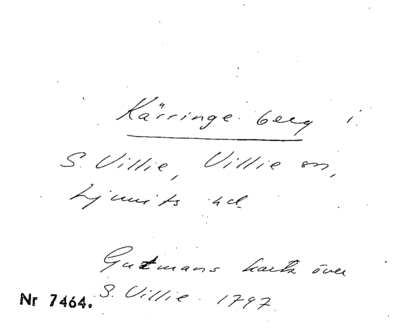 Kärringe berg i
S. Villie, Villie sn,
Ljunits hd.
Gutmans karta över
S. Villie. 1797.
Nr 7464.